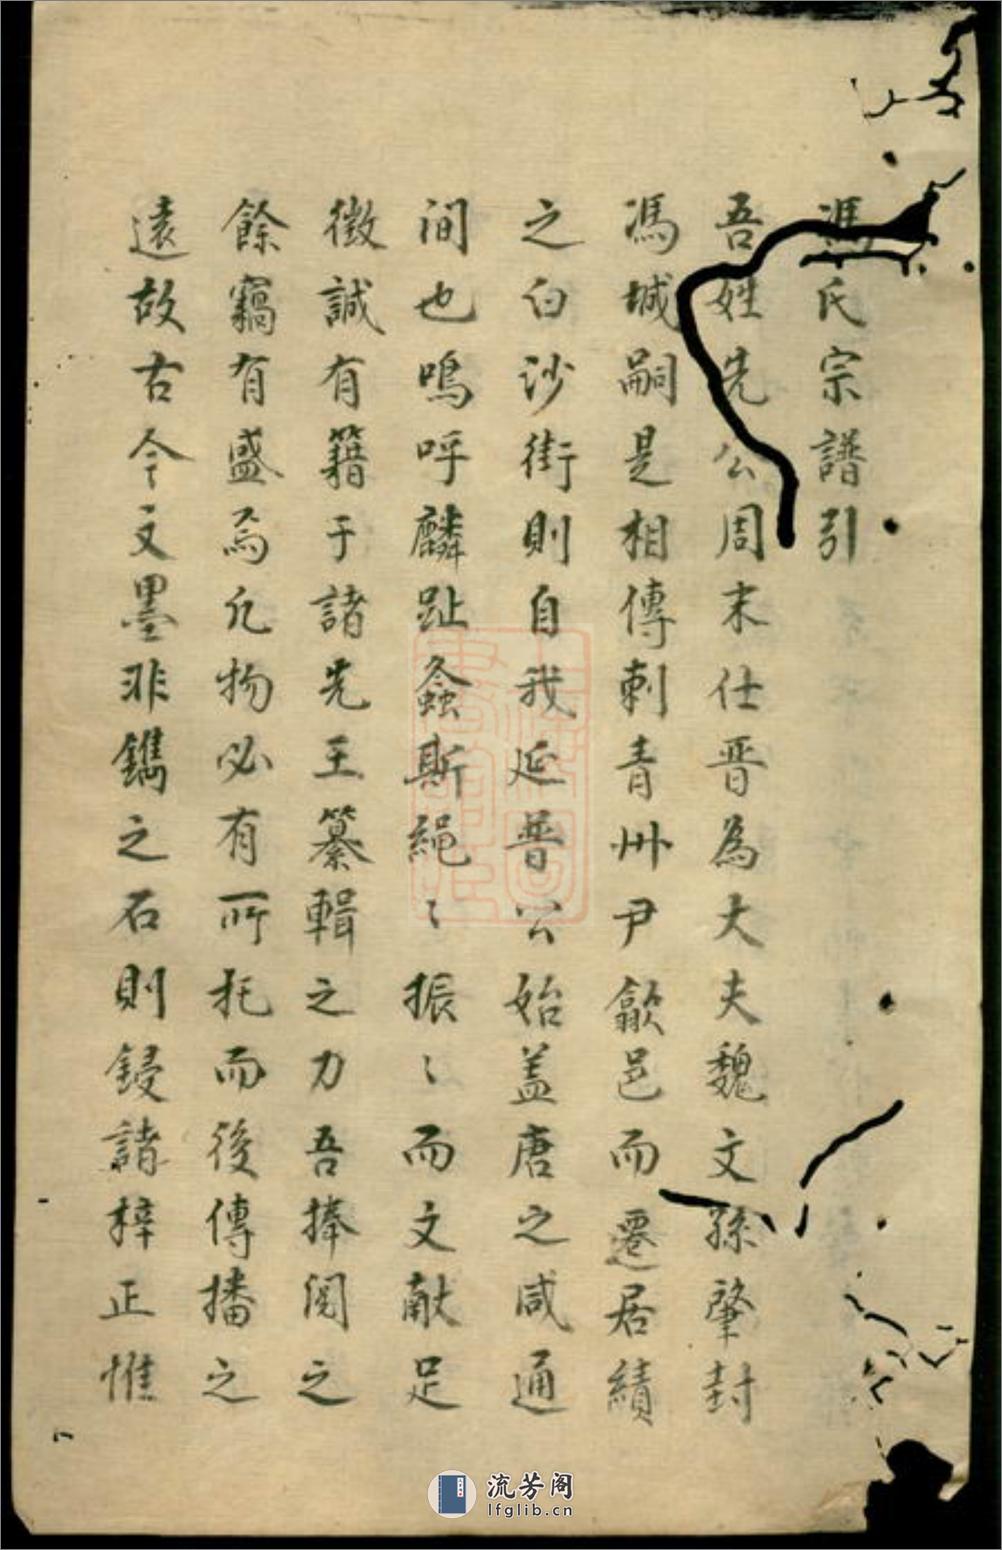 馮氏宗譜引
吾姓先公周末仕晋為大夫魏文孫肇封
馮城嗣是相傳刺青州尹歙邑而遷居績
之白沙街則自我延普公始盖唐之咸通
间也鳴呼麟趾螽斯繩〻振〻而文献足
徵誠有籍于諸先王纂輯之力吾捧阅之
餘竊有盛焉凢物必有所托而後傳播之
遠故古今文墨非鐫之石則鋟諸梓正惟
流芳阁
lfglib.cn